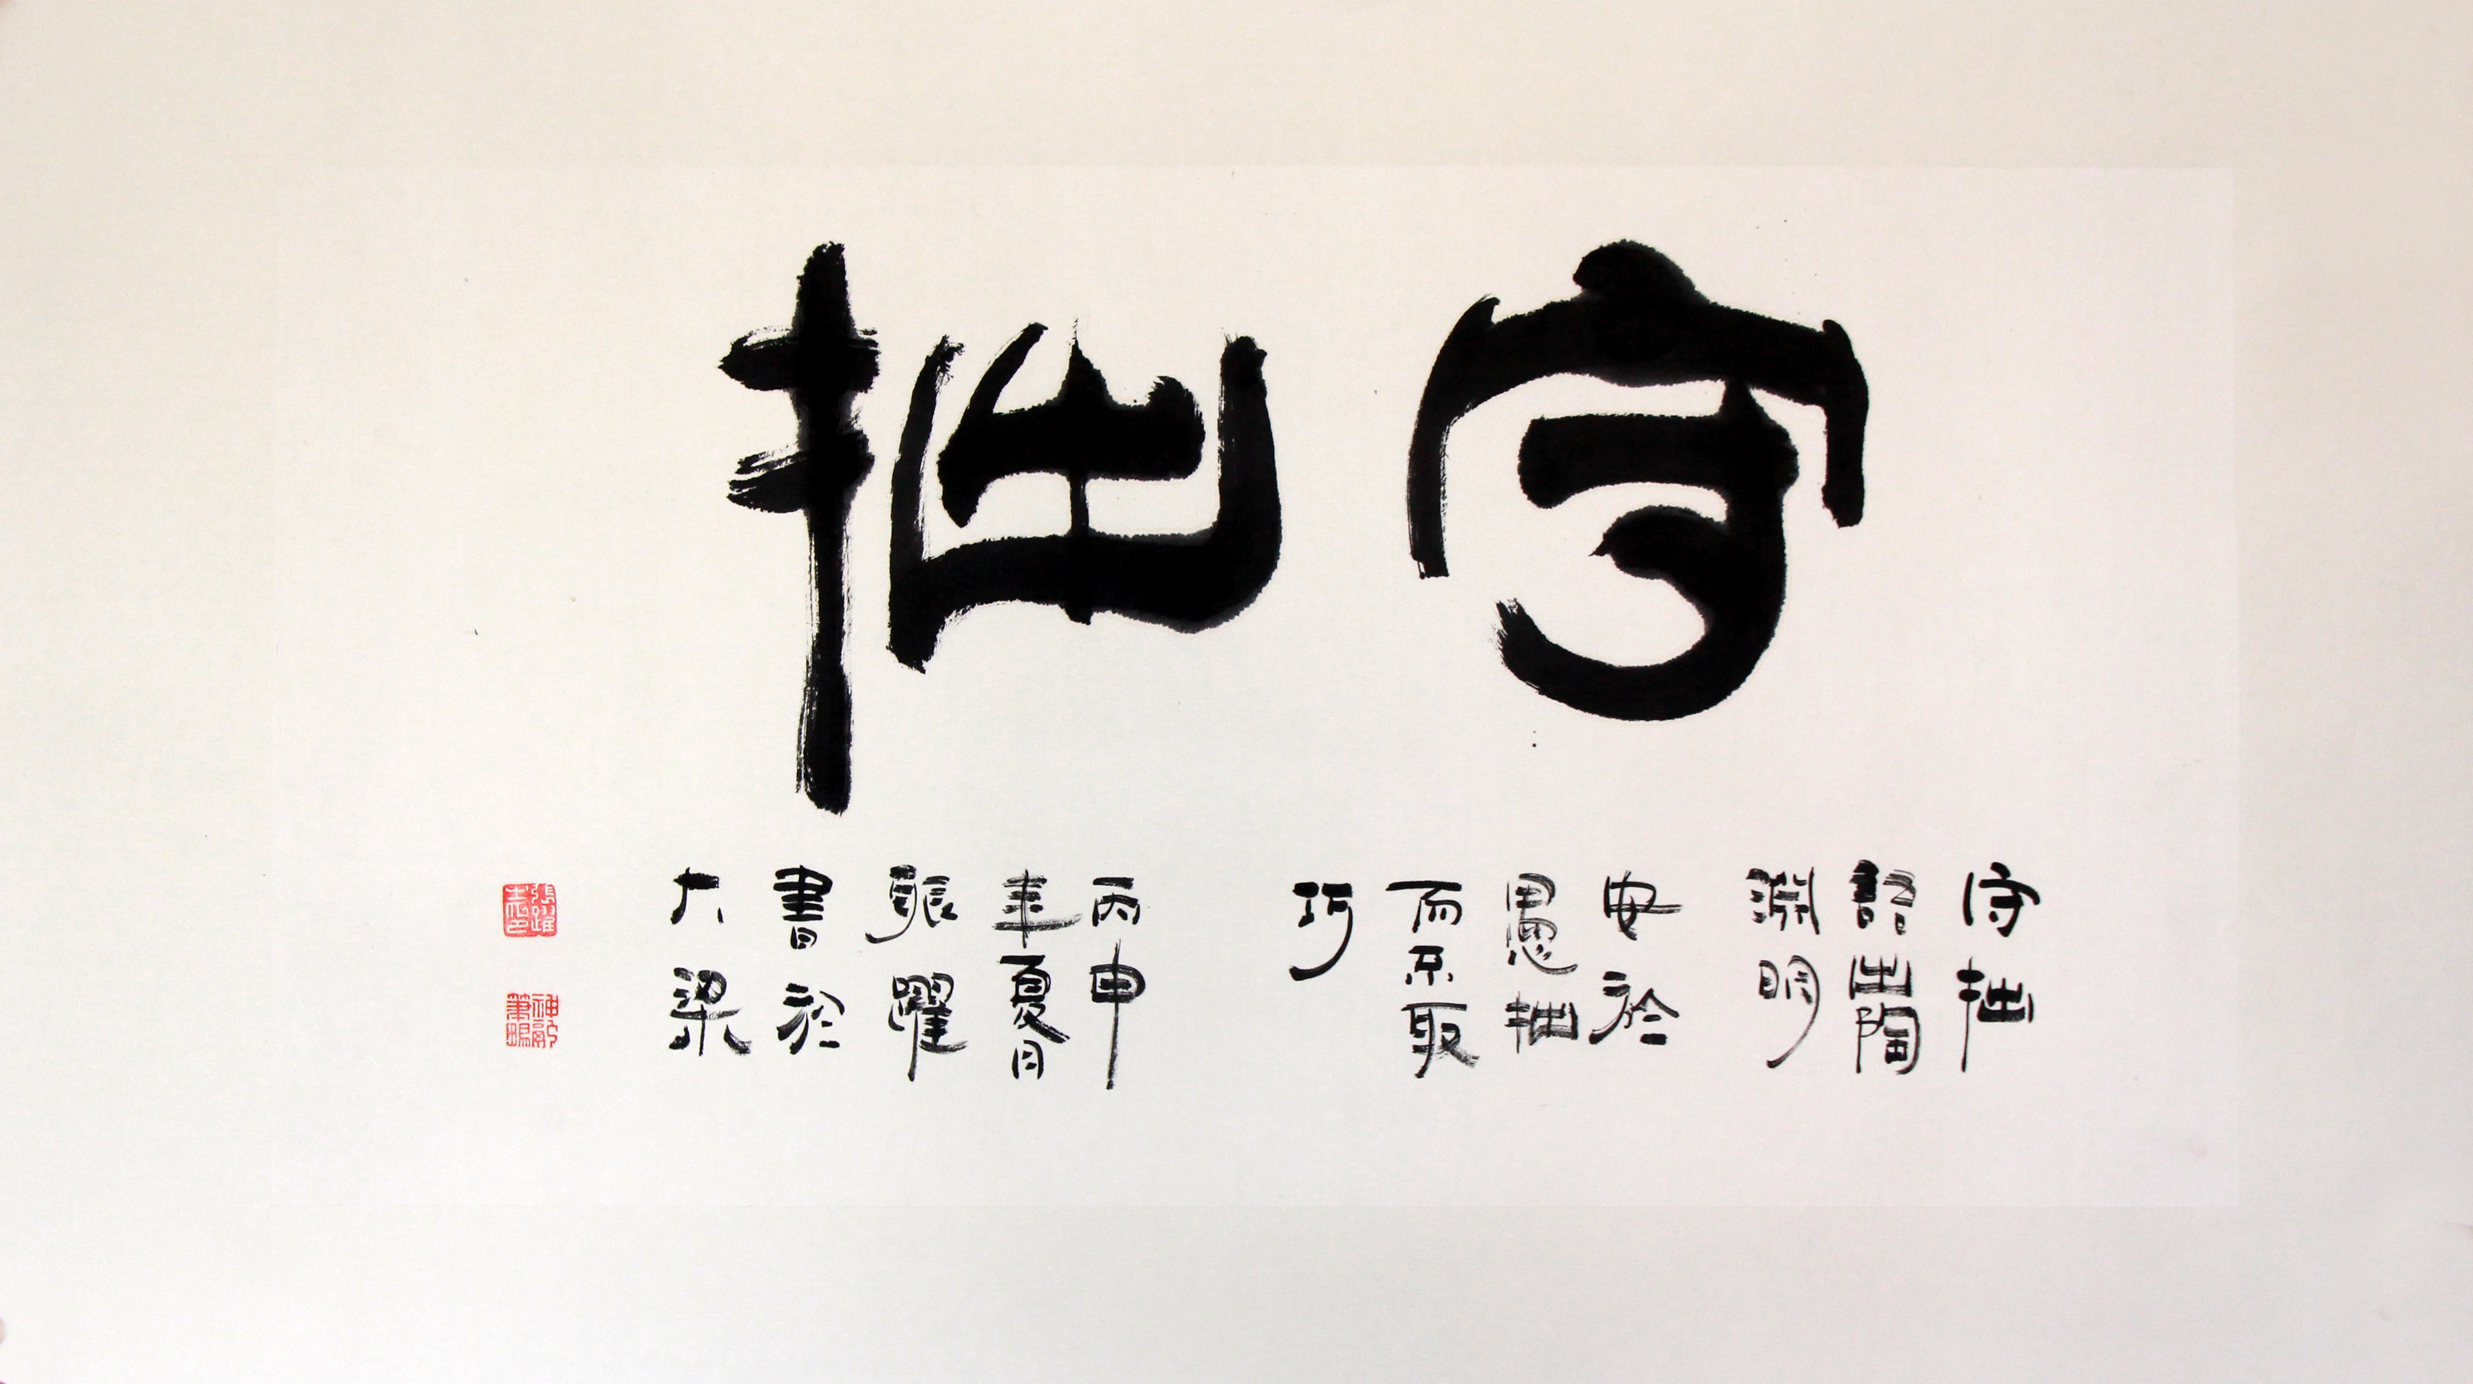 守拙
守拙
語出陶
淵明
安於
愚拙
而不取
巧
丙申
年夏月
張躍
書於
大梁
張躍